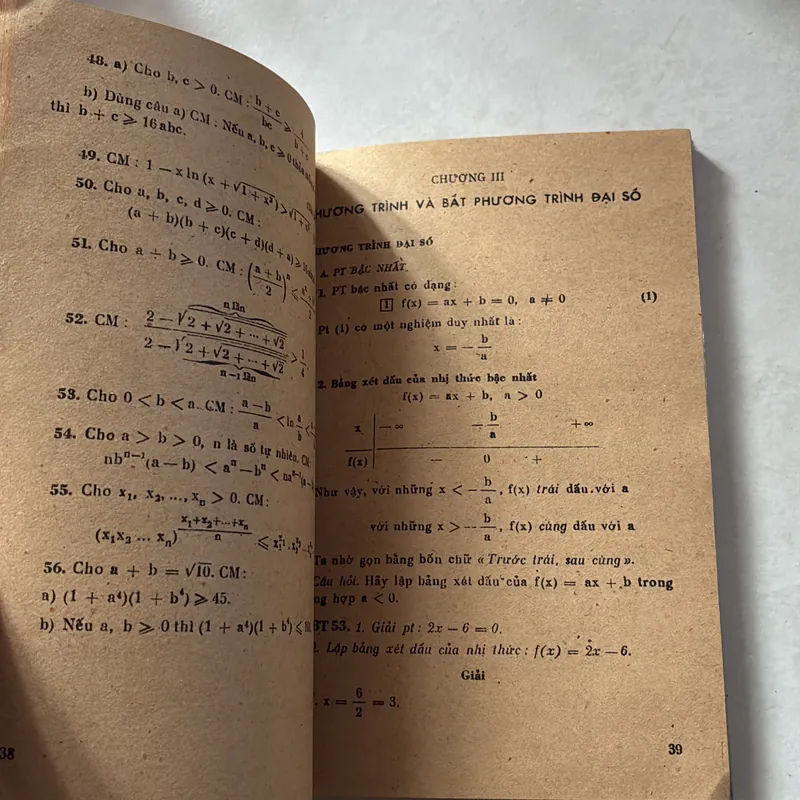 48. a) Cho b, c > 0. CM : (b + c)/(bc) ⩾ 4/(b + c)
b) Dùng câu a) CM : Nếu a, b, c ⩾ 0 thỏa
thì b + c ⩾ 16abc.
49. CM : 1 − x ln (x + √(1 + x²)) > √(1 +
50. Cho a, b, c, d ⩾ 0. CM :
(a + b)(b + c)(c + d)(d + a) ⩾
51. Cho a + b ⩾ 0. CM : ((a + b)/2)ⁿ ⩽
n lần
52. CM : (2 − √(2 + √(2 + ... + √2)))/(2 − √(2 + √(2 + ... + √2))) > 1/4
n−1 lần
53. Cho 0 < b < a. CM : (a − b)/a < ln a/b <
54. Cho a > b > 0, n là số tự nhiên. CM:
nbⁿ⁻¹(a − b) < aⁿ − bⁿ < naⁿ⁻¹(a
55. Cho x₁, x₂, ..., xₙ > 0. CM:
(x₁x₂ ... xₙ)^((x₁+x₂+...+xₙ)/n) ⩽
56. Cho a + b = √10. CM:
a) (1 + a⁴)(1 + b⁴) ⩾ 45.
b) Nếu a, b ⩾ 0 thì (1 + a⁴)(1 + b⁴) ⩽
38
CHƯƠNG III
HƯƠNG TRÌNH VÀ BẤT PHƯƠNG TRÌNH ĐẠI SỐ
HƯƠNG TRÌNH ĐẠI SỐ
A. PT BẬC NHẤT.
1. PT bậc nhất có dạng :
1 f(x) = ax + b = 0, a ≠ 0 (1)
Pt (1) có một nghiệm duy nhất là :
x = − b/a
2. Bảng xét dấu của nhị thức bậc nhất
f(x) = ax + b, a > 0
x −∞ −b/a +∞
f(x) − 0 +
Như vậy, với những x < − b/a, f(x) trái dấu với a
với những x > − b/a, f(x) cùng dấu với a
Ta nhớ gọn bằng bốn chữ «Trước trái, sau cùng».
Câu hỏi. Hãy lập bảng xét dấu của f(x) = ax + b trong
ng hợp a < 0.
BT 53. 1. Giải pt : 2x − 6 = 0.
2. Lập bảng xét dấu của nhị thức : f(x) = 2x − 6.
Giải
x = 6/2 = 3.
39